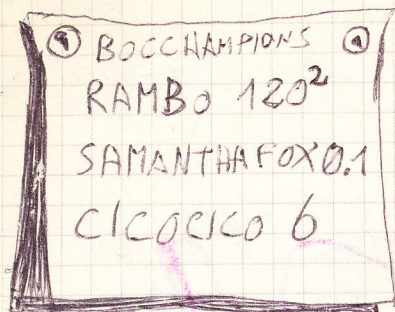 9 BOCCHAMPIONS 9
RAMBO 120²
SAMANTHA FOX 0.1
CICOCICO 6